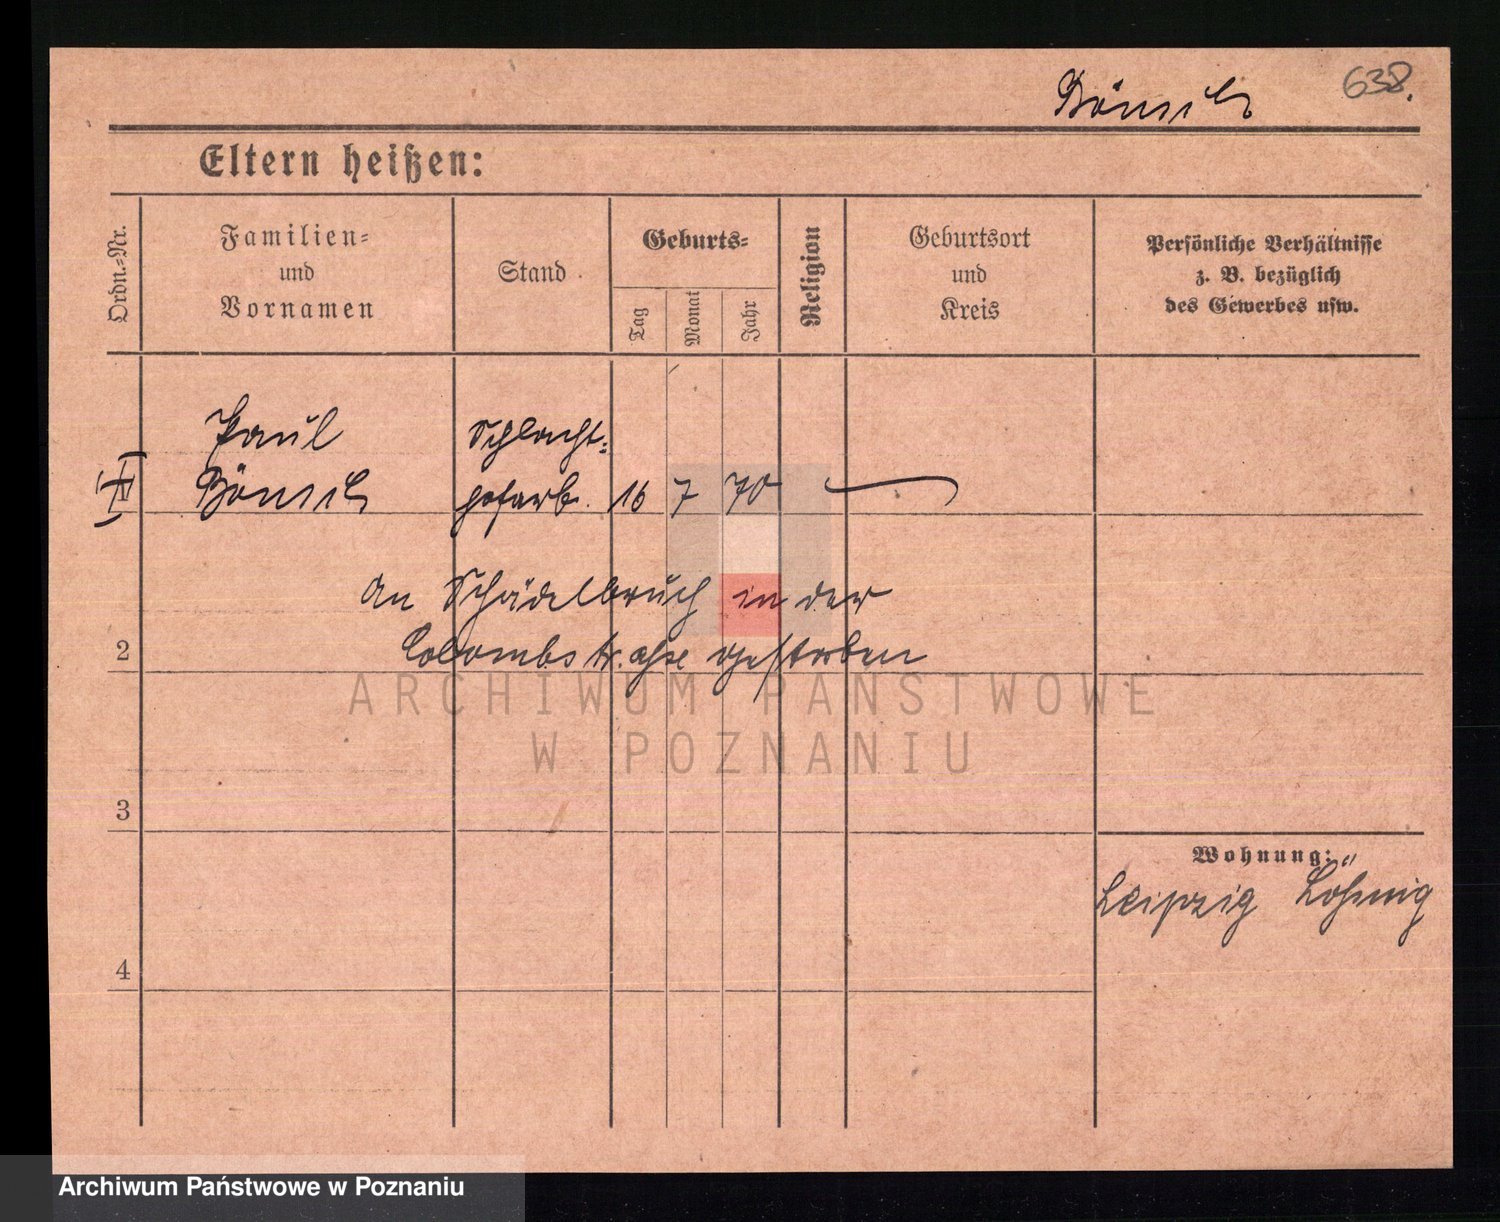 Bönisch 638.
Eltern heißen:
Ordn.-Nr.
Familien-
und
Vornamen
Stand
Geburts-
Tag
Monat
Jahr
Religion
Geburtsort
und
Kreis
Persönliche Verhältnisse
z. B. bezüglich
des Gewerbes usw.
Paul
Bönisch
Schlacht-
hofarb. 16 7 70
An Schädelbruch in der
2
gestorben
ARCHIWUM PAŃSTWOWE
W POZNANIU
3
Wohnung:
Leipzig Lößnig
4
Archiwum Państwowe w Poznaniu